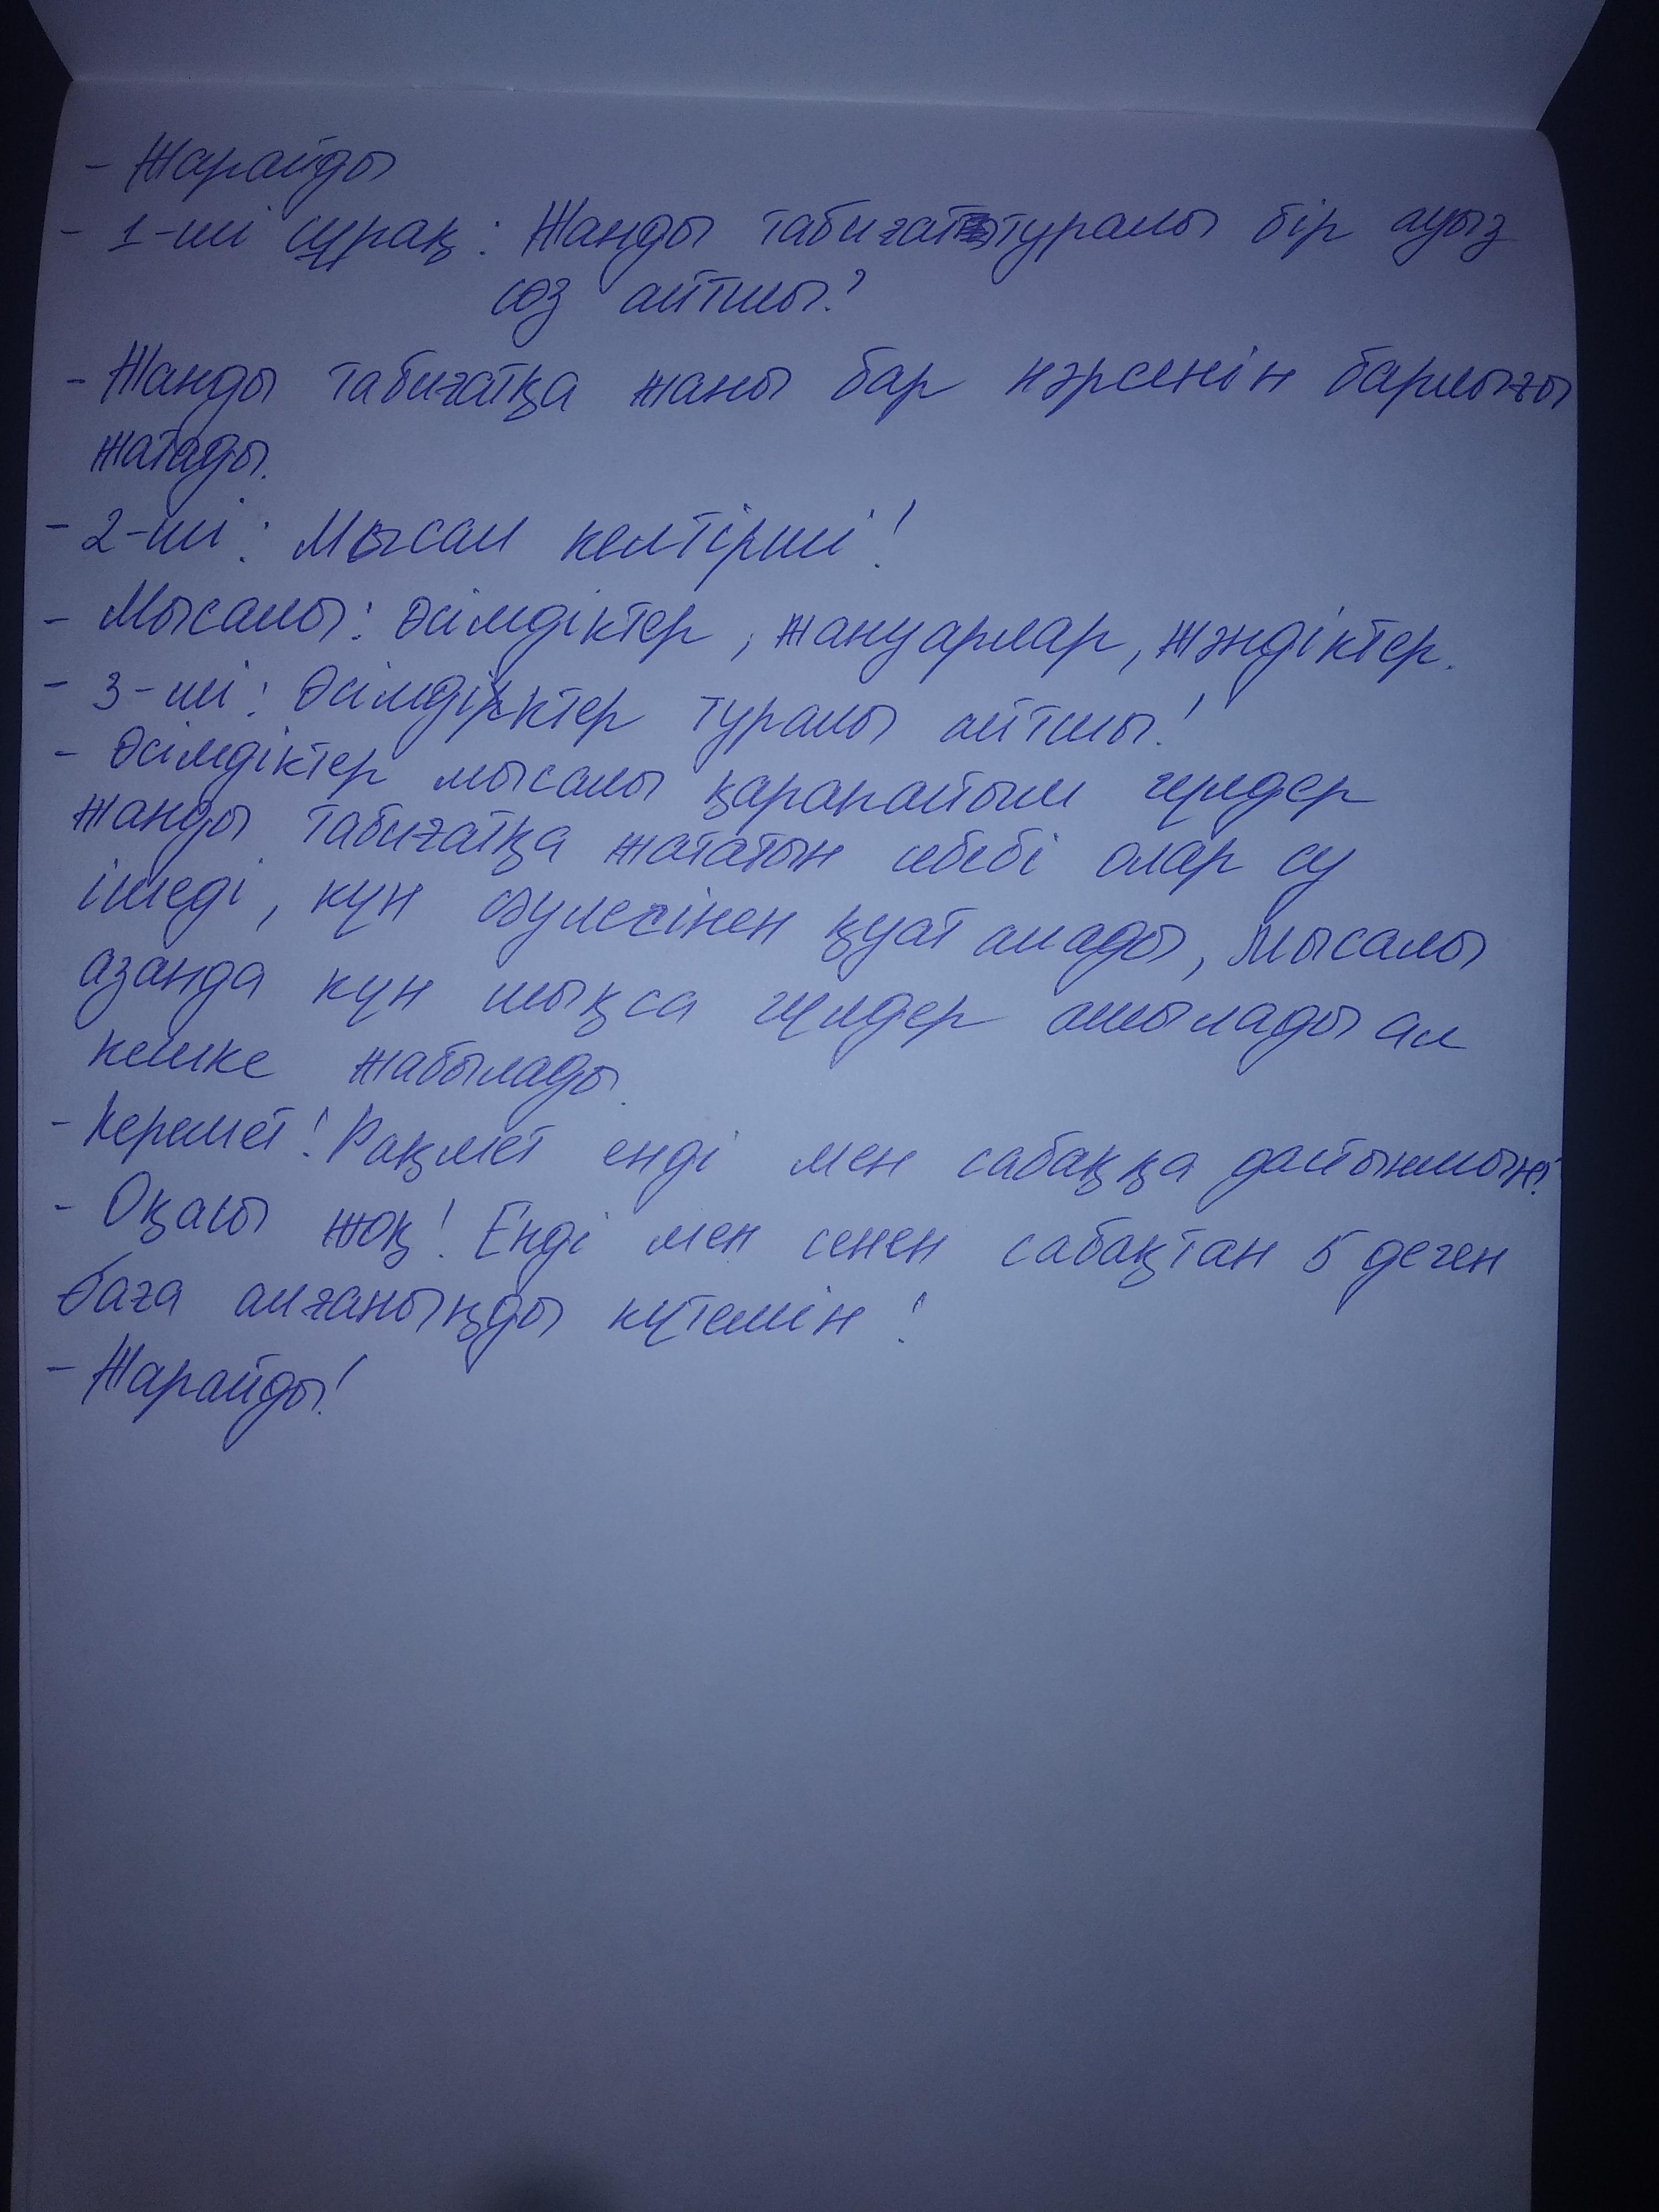 - Жарайды
- 1-ші сұрақ: Жанды табиғат туралы бір ауыз
сөз айтшы?
- Жанды табиғатқа жаны бар нәрсенін барлығы
жатады.
- 2-ші: Мысал келтірші!
- Мысалы: өсімдіктер, жануарлар, жәндіктер.
- 3-ші: Өсімдіктер туралы айтшы!
- Өсімдіктер мысалы қарапайым гүлдер
жанды табиғатқа жататын себебі олар су
ішеді, күн сәулесінен қуат алады, мысалы
азанда күн шықса гүлдер ашылады ал
кешке жабылады.
- Керемет! Рақмет енді мен сабаққа дайынмын!
- Оқасы жоқ! Енді мен сенен сабақтан 5 деген
баға алғаныңды күтемін!
- Жарайды!